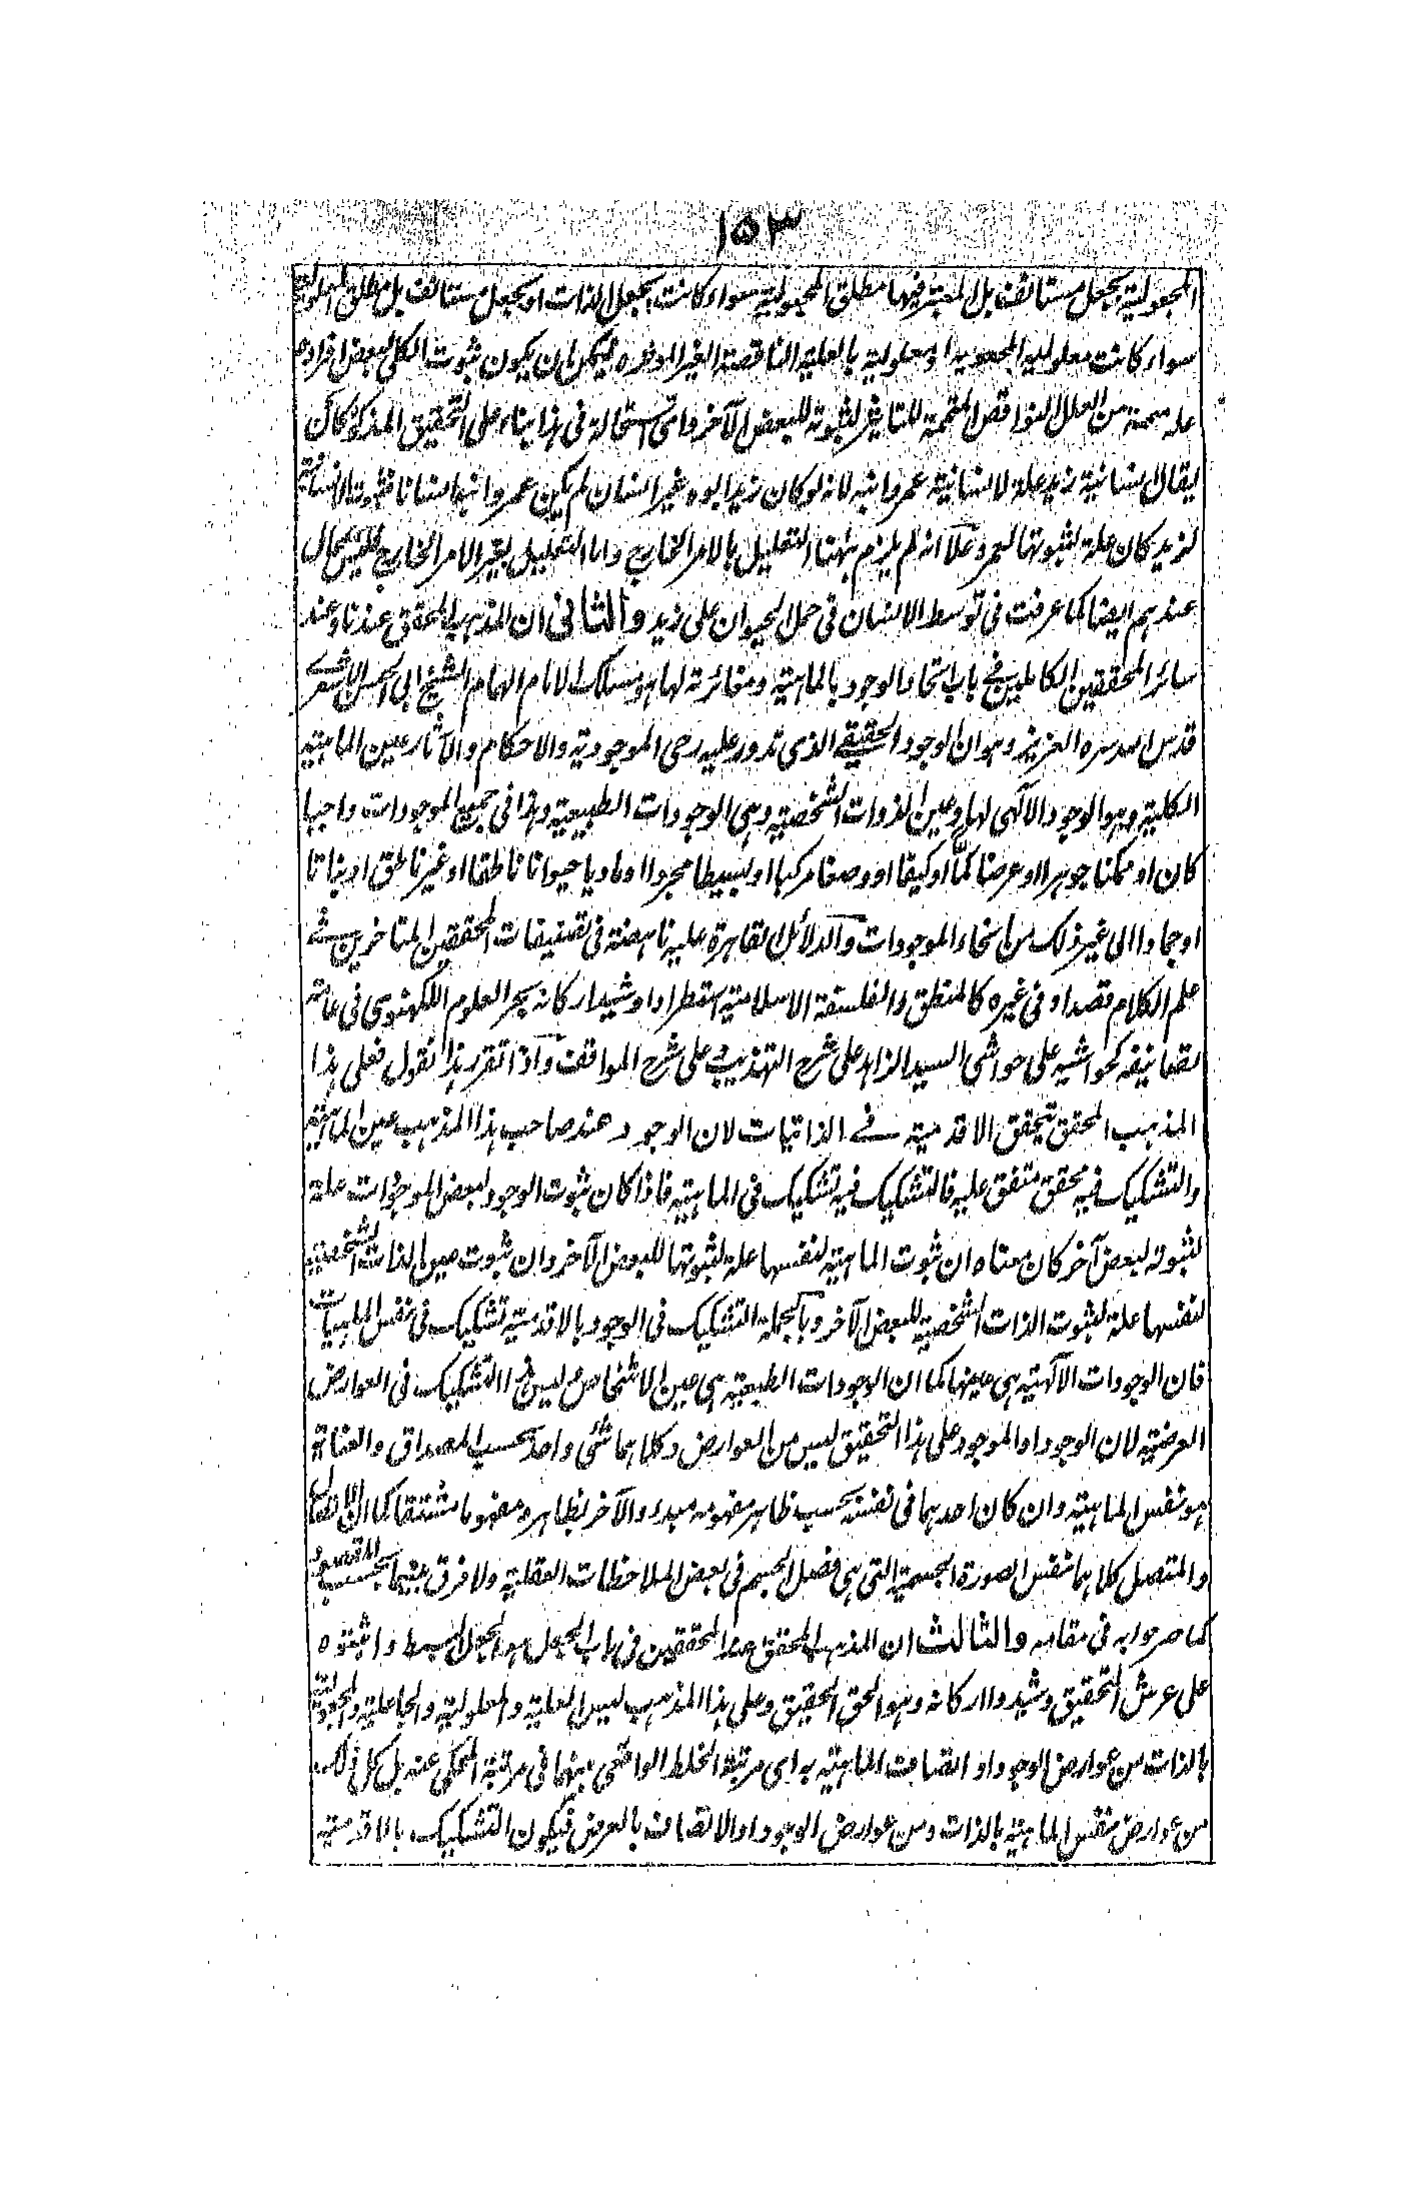 ١٥٣
المجعولية بجعل مستانف بل المعتبر فيها مطلق المجعولية سواء كانت بجعل الذات او بجعل مستانف بل مطلق المعلولية
سواء كانت معلولية المجعولية او معلولية بالعلية الناقصة الغير الموثرة فيمكن ان يكون ثبوت الكلى لبعض افراده
علة متممة من العلل النواقص المتممة للتاثير لثبوته للبعض الآخر واى استحالة فى هذا بناء على التحقيق المذكور كان
يقال انسانية زيد علة لانسانية عمرو ابنه لانه لو كان زيد ابوه غير انسان لم يكن عمرو ابنه انسانا فثبوت الانسانية
لزيد كان علة لثبوتها لعمرو علا انه لم يلزم ههنا التعليل بالامر الخارج واما التعليل بغير الامر الخارج فليس بمحال
عندهم ايضا كما عرفت فى توسط الانسان فى حمل الحيوان على زيد والثانى ان المذهب المحقق عندنا وعند
سائر المحققين الكاملين فى باب اتحاد الوجود بالماهية ومغائرته لها هو مسلك الامام الهمام الشيخ ابى الحسن الاشعرى
قدس الله سره العزيز وهو ان الوجود الحقيقى الذى تدور عليه رحى الموجودية والاحكام والآثار عين الماهية
الكلية وهو الوجود الالهى لها وعين الذوات الشخصية وهى الوجودات الطبيعية وهذا فى جميع الموجودات واجبا
كان او ممكنا جوهرا او عرضا كمّا او كيفا او وصفا مركبا او بسيطا مجردا او ماديا حيوانا ناطقا او غير ناطق او نباتا
او جمادا الى غير ذلك من انحاء الموجودات والدلائل القاهرة عليه ناهضة فى تصنيفات المحققين المتاخرين فى
علم الكلام قصدا وفى غيره كالمنطق والفلسفة الاسلامية استطرادا وشيد اركانه بحر العلوم اللكهنوى فى عامة
تصانيفه كحواشيه على حواشى السيد الزاهد على شرح التهذيب وعلى شرح المواقف واذا تقرر هذا فنقول فعلى هذا
المذهب المحقق تتحقق الاقدمية فى الذاتيات لان الوجود عند صاحب هذا المذهب عين الماهية
والتشكيك فيه محقق متفق عليه فالتشكيك فيه تشكيك فى الماهية فاذا كان ثبوت الوجود لبعض الموجودات علة
لثبوته لبعض آخر كان معناه ان ثبوت الماهية لنفسها علة لثبوتها للبعض الآخر وان ثبوت عين الذات الشخصية
لنفسها علة لثبوت الذات الشخصية للبعض الآخر وبالجملة التشكيك فى الوجود بالاقدمية تشكيك فى نفس الماهيات
فان الوجودات الآلهية هى عينها كما ان الوجودات الطبعية هى عين الاشخاص وليس هذا التشكيك فى العوارض
العرضية لان الوجود او الموجود على هذا التحقيق ليس من العوارض وكلاهما شئ واحد بحسب المصداق والعناية
هو نفس الماهية وان كان احدهما فى نفسه بحسب ظاهر مفهومه مبدء والآخر بظاهره مفهوما مشتقا كما ان الاتصال
والمتصل كلاهما نفس الصورة الجسمية التى هى فصل الجسم فى بعض الملاحظات العقلية ولا فرق بينهما بحسب المقصود
كما صرحوا به فى مقامه والثالث ان المذهب المحقق عند المحققين فى باب الجعل هو الجعل البسيط واثبتوه
على عرش التحقيق وشيدوا اركانه وهو الحق الحقيق وعلى هذا المذهب ليس العلية والمعلولية والجاعلية والمجعولية
بالذات من عوارض الوجود او اتصاف الماهية به اى مرتبة الخلط الواقعى بينهما فى مرتبة المحكى عنه بل كل ذلك
من عوارض نفس الماهية بالذات ومن عوارض الوجود او الاتصاف بالعرض فيكون التشكيك بالاقدمية